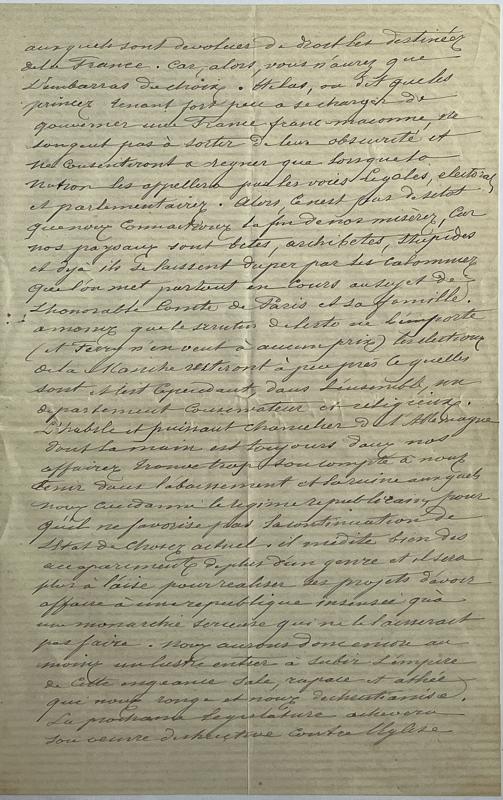 auxquels sont dévolues de droit les destinées
de la France. Car, alors, vous n'aurez que
l'embarras du choix. Hélas, on dit que les
princes tenant fort peu à se charger de
gouverner une France franc-maconne, ne
songent pas à sortir de leur obscurité et
ne consentiront à régner que lorsque la
Nation les appellera par les voies légales, électorales
et parlementaires. Alors, ce n'est pas de sitôt
que nous connaitrons la fin de nos misères, Car
nos paysans sont bêtes, archibêtes, stupides
et déjà ils se laissent duper par les calomnies
que l'on met partout en cours au sujet de
l'honorable Comte de Paris et sa famille.
à moins que le scrutin de liste ne l'emporte
(et Ferry n'en veut à aucun prix) les élections
de la Manche resteront à peu près ce qu'elles
sont et c'est cependant, dans l'ensemble, un
département Conservateur et religieux.
L'habile et puissant chancelier de l'Allemagne
dont la main est toujours dans nos
affaires trouve trop son compte à nous
tenir dans l'abaissement et la ruine auxquels
nous condamne le régime républicain, pour
qu'il ne favorise pas la continuation de
l'état de choses actuel. il médite bien des
accaparements de plus d'un genre et il sera
plus à l'aise pour réaliser ses projets d'avoir
affaire à une république insensée qu'à
une monarchie sérieuse qui ne le laisserait
pas faire. nous aurons donc encore au
moins un lustre entier à subir l'empire
de cette engeance sale, rapace et athée
qui nous ronge et nous déchristianise.
La prochaine législature achèvera
son œuvre destructive contre l'église